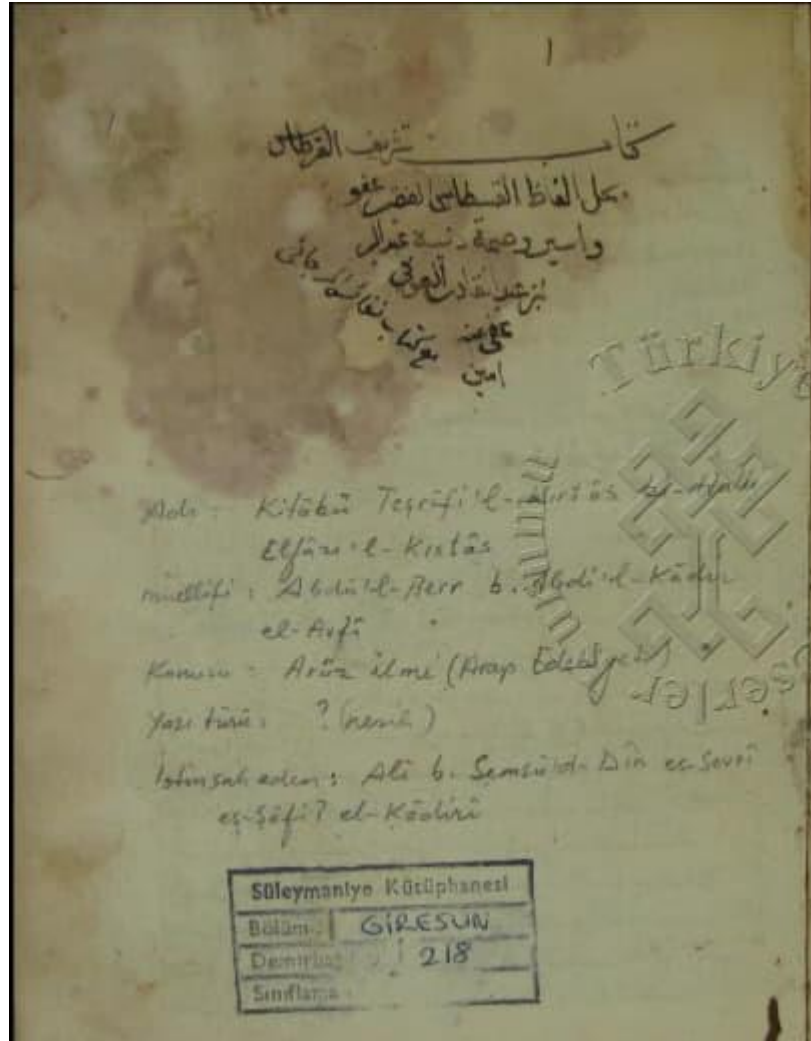 ١
كتاب تشريف القرطاس
بحل الفاظ القسطاس لفقير عفو
واسير وصمة ذنبه عبد البر
بن عبد القادر العوفى
عفى عنه
امين
مع كتاب
Türkiye
Adı : Kitâbü Teşrîfi'l-Kırtâs
Elfâzı'l-Kıstâs
müellifi : Abdü'l-Berr b. Abdi'l-Kâdir
el-Avfî
Konusu : Arûz ilmi (Arap Edebiyatı)
Yazı türü : ? (nesih)
İstinsah eden : Ali b. Şemsü'd-Dîn
eş-Şâfi? el-Kâdirî
Yazma
Eserler
Süleymaniye Kütüphanesi
Bölüm : GİRESUN
Demirbaş 218
Sınıflama